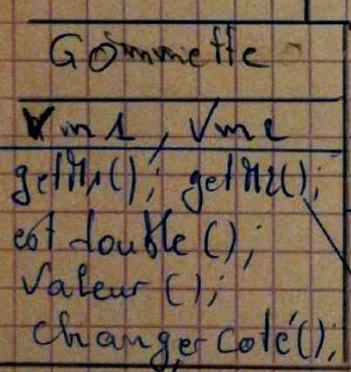 Gommette
Vm1, Vm2
getM1(); getM2();
est double();
Valeur();
changer coté();